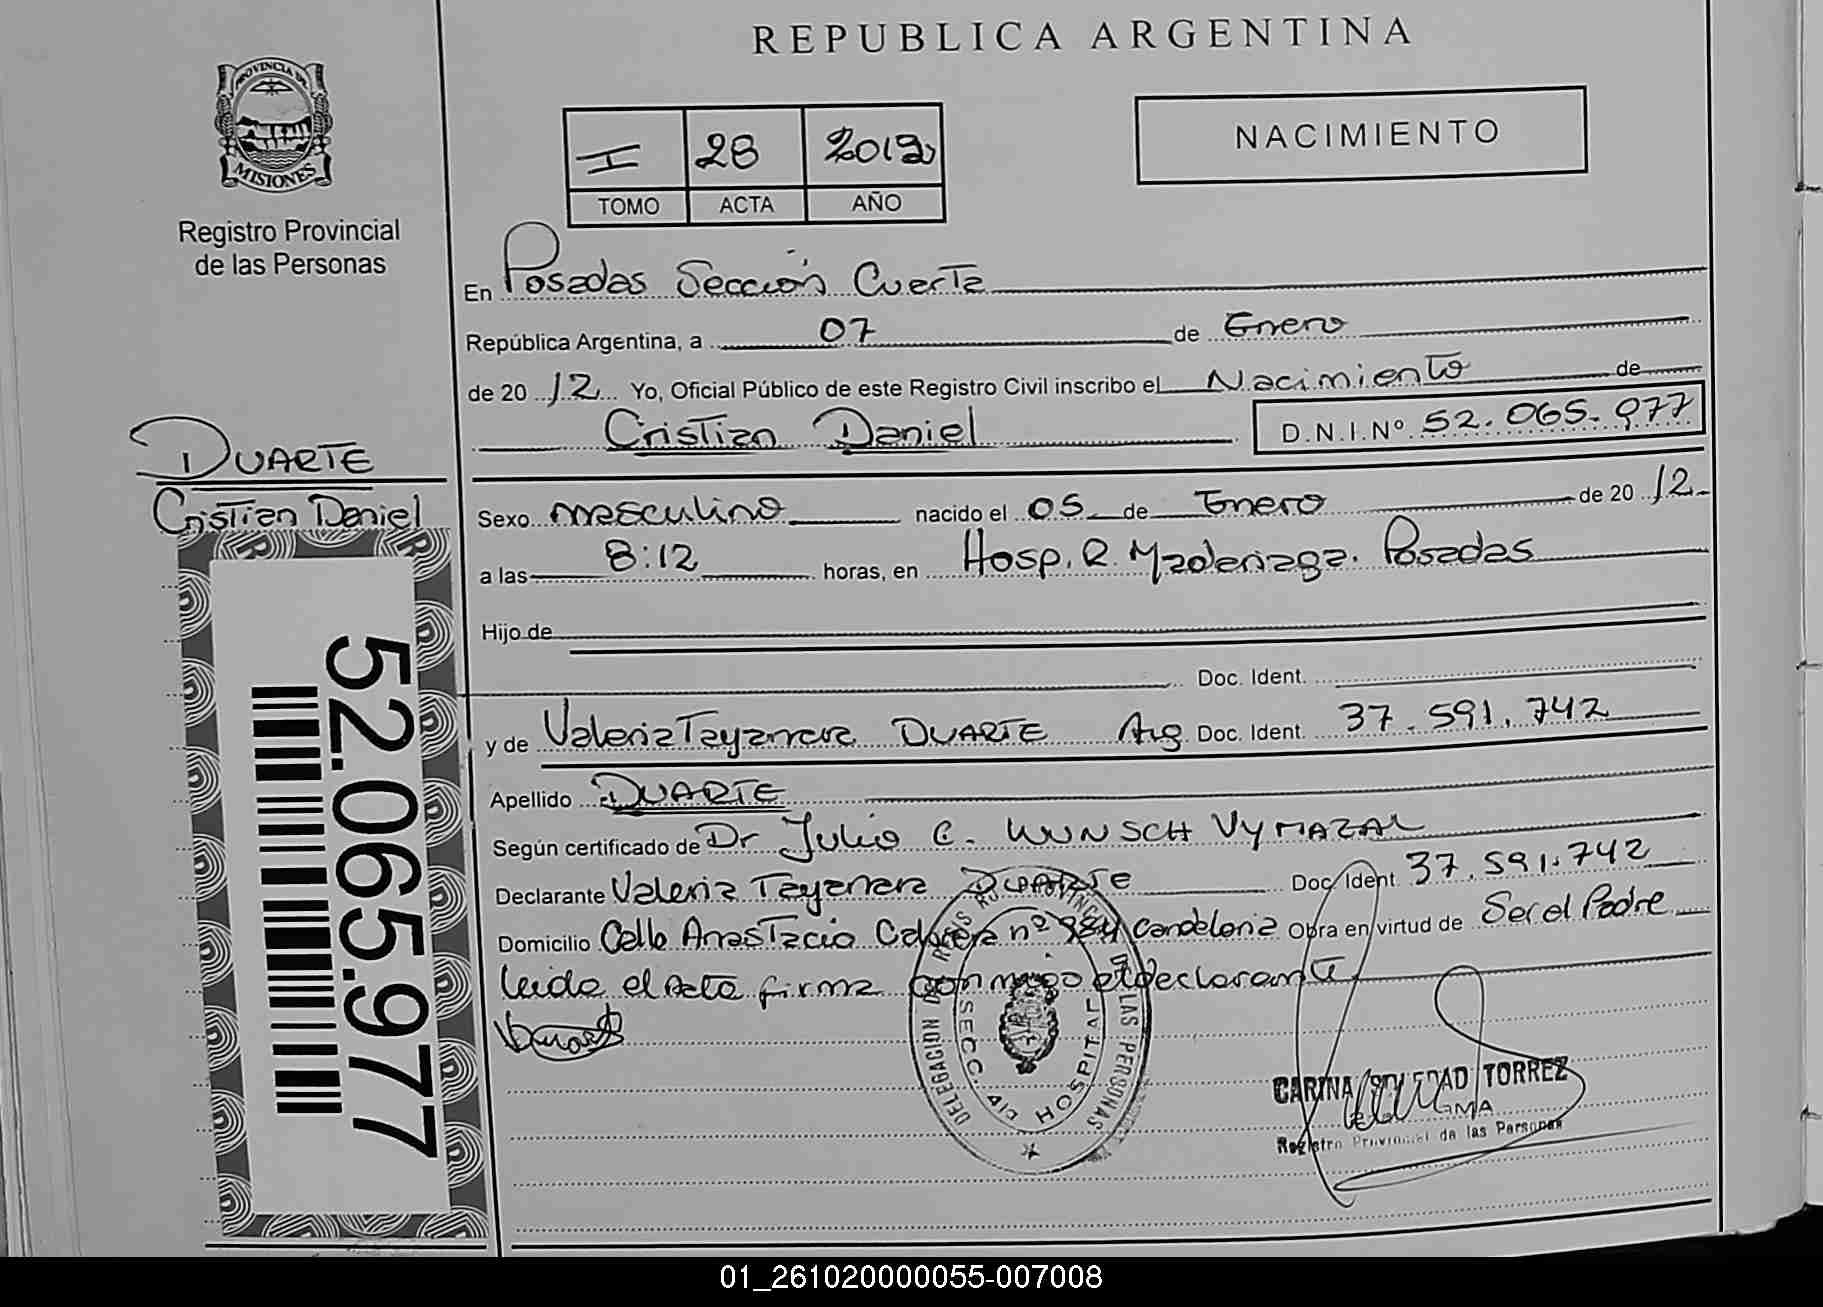 REPUBLICA ARGENTINA
PROVINCIA DE
MISIONES
Registro Provincial
de las Personas
I 28 2012
TOMO ACTA AÑO
NACIMIENTO
En Posadas Sección Cuarta
República Argentina, a 07 de Enero
de 20 12 Yo, Oficial Público de este Registro Civil inscribo el Nacimiento de
Cristian Daniel D.N.I.Nº 52.065.977
DUARTE
Cristian Daniel
52.065.977
Sexo masculino nacido el 05 de Enero de 20 12
a las 8:12 horas, en Hosp. R. Madariaga. Posadas
Hijo de
Doc. Ident.
y de Valeria Tayanara DUARTE Arg Doc. Ident. 37.591.742
Apellido DUARTE
Según certificado de Dr Julio C. WUNSCH VYMAZAL
Declarante Valeria Tayanara DUARTE Doc. Ident. 37.591.742
Domicilio Calle Anastacio Cabrera nº 384 Candelaria Obra en virtud de Ser el Padre
leida el acta firma conmigo el declarante
DELEGACION REGISTRO PROVINCIAL DE LAS PERSONAS
SECC. 4ta HOSPITAL
CARINA SOLEDAD TORREZ
Registro Provincial de las Personas
01_261020000055-007008